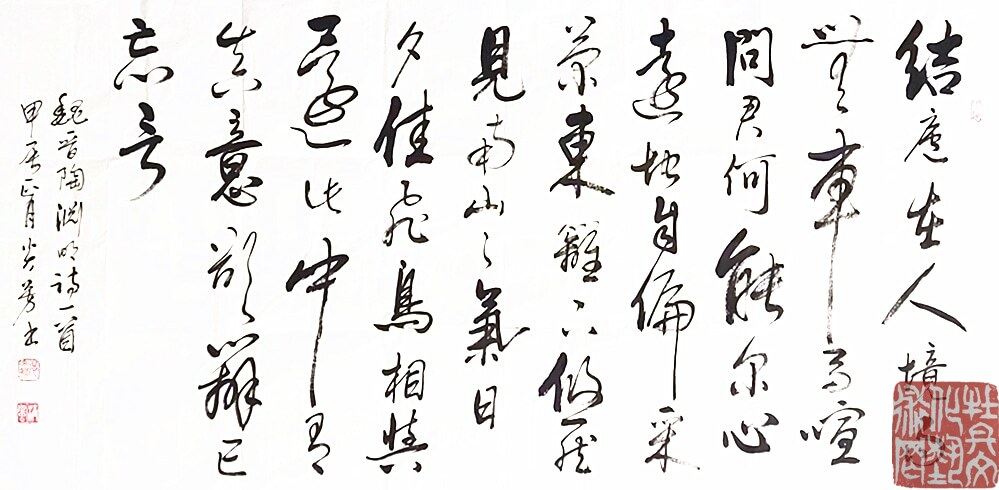 結廬在人境而
無車馬喧
問君何能尔心
遠地自偏采
菊東籬下悠然
見南山々氣日
夕佳飛鳥相與
還此中有
真意欲辨已
忘言
魏晋陶淵明詩一首
甲辰正月书